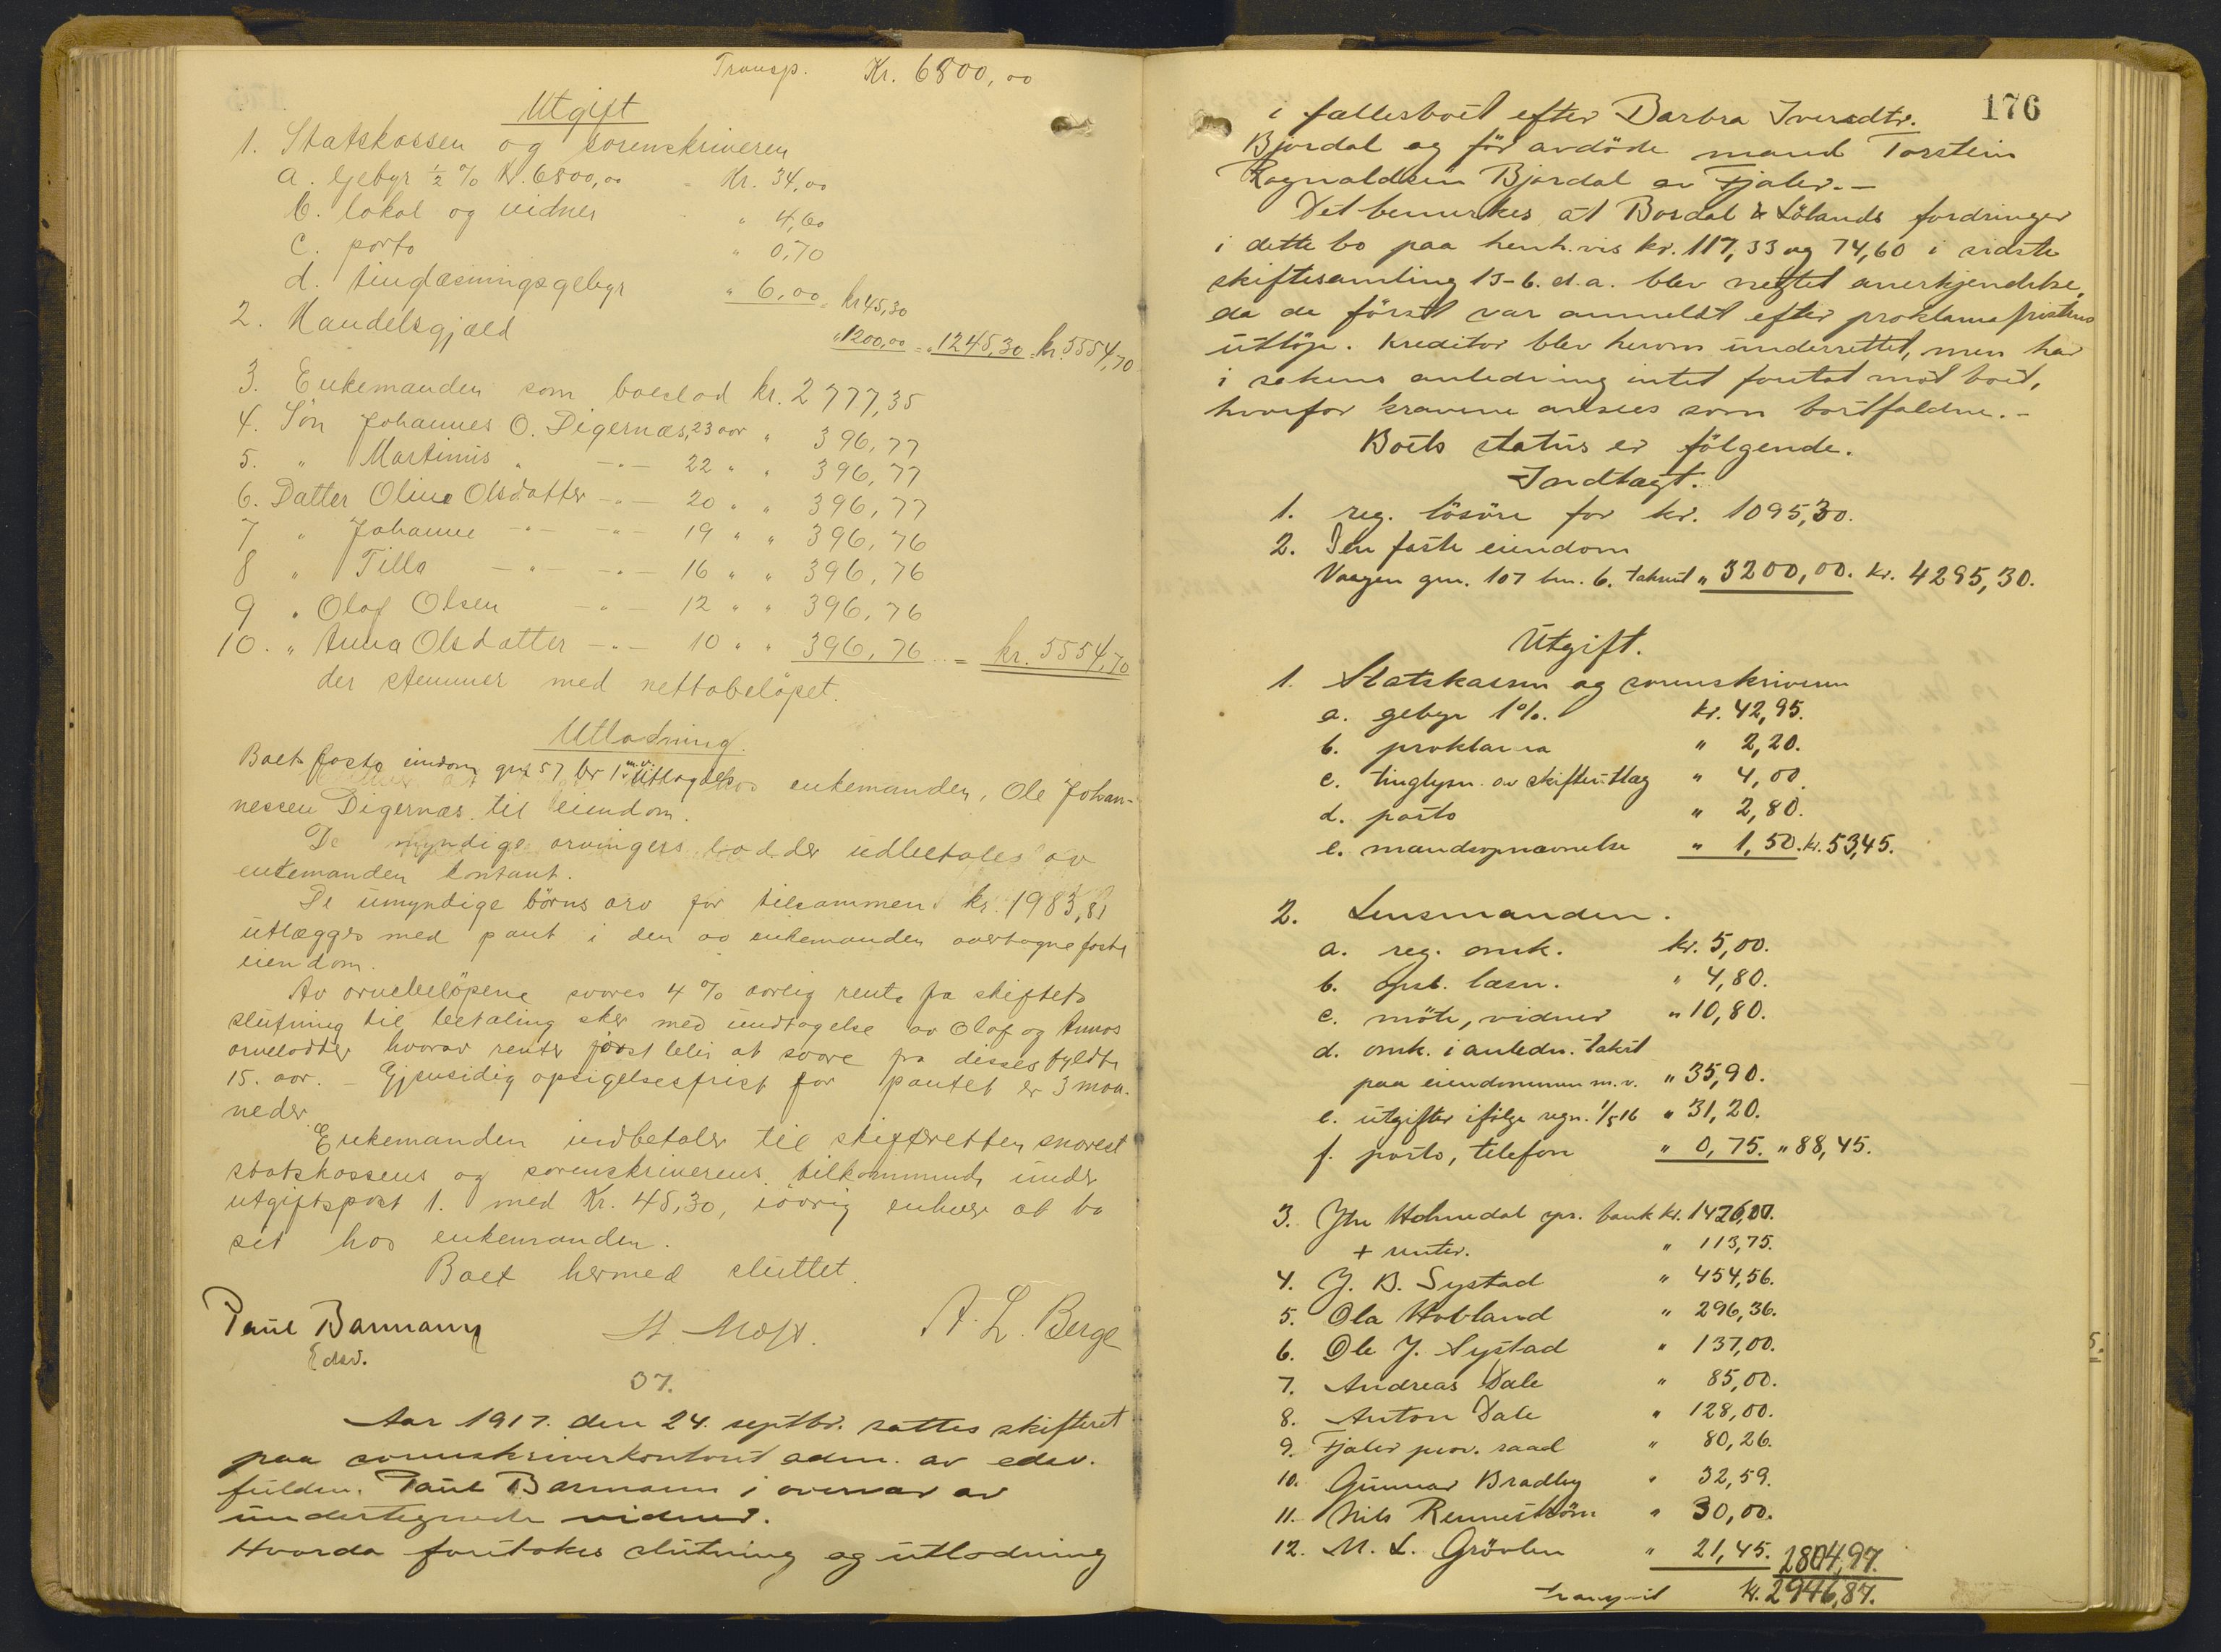 Transp. Kr. 6800,00
Utgift
1. Statskassen og sorenskriveren
a. Gebyr ½ % Kr. 6800,00 Kr. 34,00
b. lokal og vidner " 4,60
c. porto " 0,70
d. tinglæsningsgebyr " 6,00 = kr 45,30
2. Handelsgjæld " 1200,00 = " 1245,30 kr. 5554,70
3. Enkemanden som boeslod kr. 2777,35
4. Søn Johannes O. Digernæs, 23 aar " 396,77
5. " Martinus " -"- 22 " " 396,77
6. Datter Oline Olsdatter -"- 20 " " 396,77
7 " Johanne -"- -"- 19 " " 396,76
8 " Tilla -"- -"- 16 " " 396,76
9 " Olaf Olsen -"- 12 " " 396,76
10. " Anna Olsdatter -"- 10 " " 396,76 = kr. 5554,70
der stemmer med nettobeløpet.
Utlodning.
Boets faste eiendom gnr 57 br 1 m.v. utlægges enkemanden, Ole Johan-
nessen Digernæs til eiendom.
De myndige arvingers lodder udbetales av
enkemanden kontant.
De umyndige børns arv for tilsammen kr. 1983,81
utlægges med pant i den av enkemanden overtagne faste
eiendom.
Av arvebeløpene svares 4 % aarlig rente fra skiftets
slutning til betaling sker med undtagelse av Olaf og Annas
arvelodder hvorav renter først blir at svare fra disses fyldte
15. aar. - Gjensidig opsigelsesfrist for pantet er 3 maa-
neder.
Enkemanden indbetaler til skifteretten snarest
statskassens og sorenskriverens tilkommende under
utgiftspost 1. med Kr. 45,30, iøvrig enhver at ha
sit hos enkemanden.
Boet hermed sluttet.
Paul Barmann H. Moss. A. L. Berge
Edsv.
37.
Aar 1917. den 24. septbr. sattes skifteret
paa sorenskriverkontoret adm. av edsv.
fuldm. Paul Barmann i overvær av
undertegnede vidner.
Hvorda foretokes slutning og utlodning
176
i fællesboet efter Barbra Iversdtr.
Bjordal og før avdøde mand Torstein
Ragnaldsen Bjordal av Fjaler. -
Det bemerkes at Bosdal & Lølands fordringer
i dette bo paa henh.vis kr. 117,33 og 74,60 i sidste
skiftesamling 15-6. d.a. blev negtet anerkjendelse,
da de først var anmeldt efter proklamafristens
utløp. Kreditor blev herom underrettet, men har
i sakens anledning intet foretat mot boet,
hvorfor kravene ansees som bortfaldne. -
Boets status er følgende.
Indtægt.
1. reg. løsøre for kr. 1095,30.
2. Den faste eiendom
Vaagen gnr. 107 bnr. 6. takseret " 3200,00. kr. 4295,30.
Utgift.
1. Statskassen og sorenskriveren
a. gebyr 1%. kr. 42,95.
b. proklama " 2,20.
c. tinglysn. av skifteutlæg " 4,00.
d. porto " 2,80.
e. mandsopnævnelse " 1,50. kr. 53,45.
2. Lensmanden.
a. reg. omk. kr. 5,00.
b. opst. læsn. " 4,80.
c. møte, vidner " 10,80.
d. omk. i anledn. takst
paa eiendommen m.v. " 35,90.
e. utgifter ifølge regn. 1/5 16 " 31,20.
f. porto, telefon " 0,75. " 88,45.
3. Ytre Holmedal spr. bank kr. 1426,00.
+ renter. " 113,75.
4. J. B. Systad " 454,56.
5. Ola Hovland " 296,36.
6. Ole J. Systad " 137,00.
7. Andreas Dale " 85,00.
8. Anton Dale " 128,00.
9. Fjaler prov. raad " 80,26.
10. Gunnar Bradley " 32,59.
11. Nils Renneström " 30,00.
12. M. L. Grøvlen " 21,45. 2804,97.
transport kr. 2946,87.